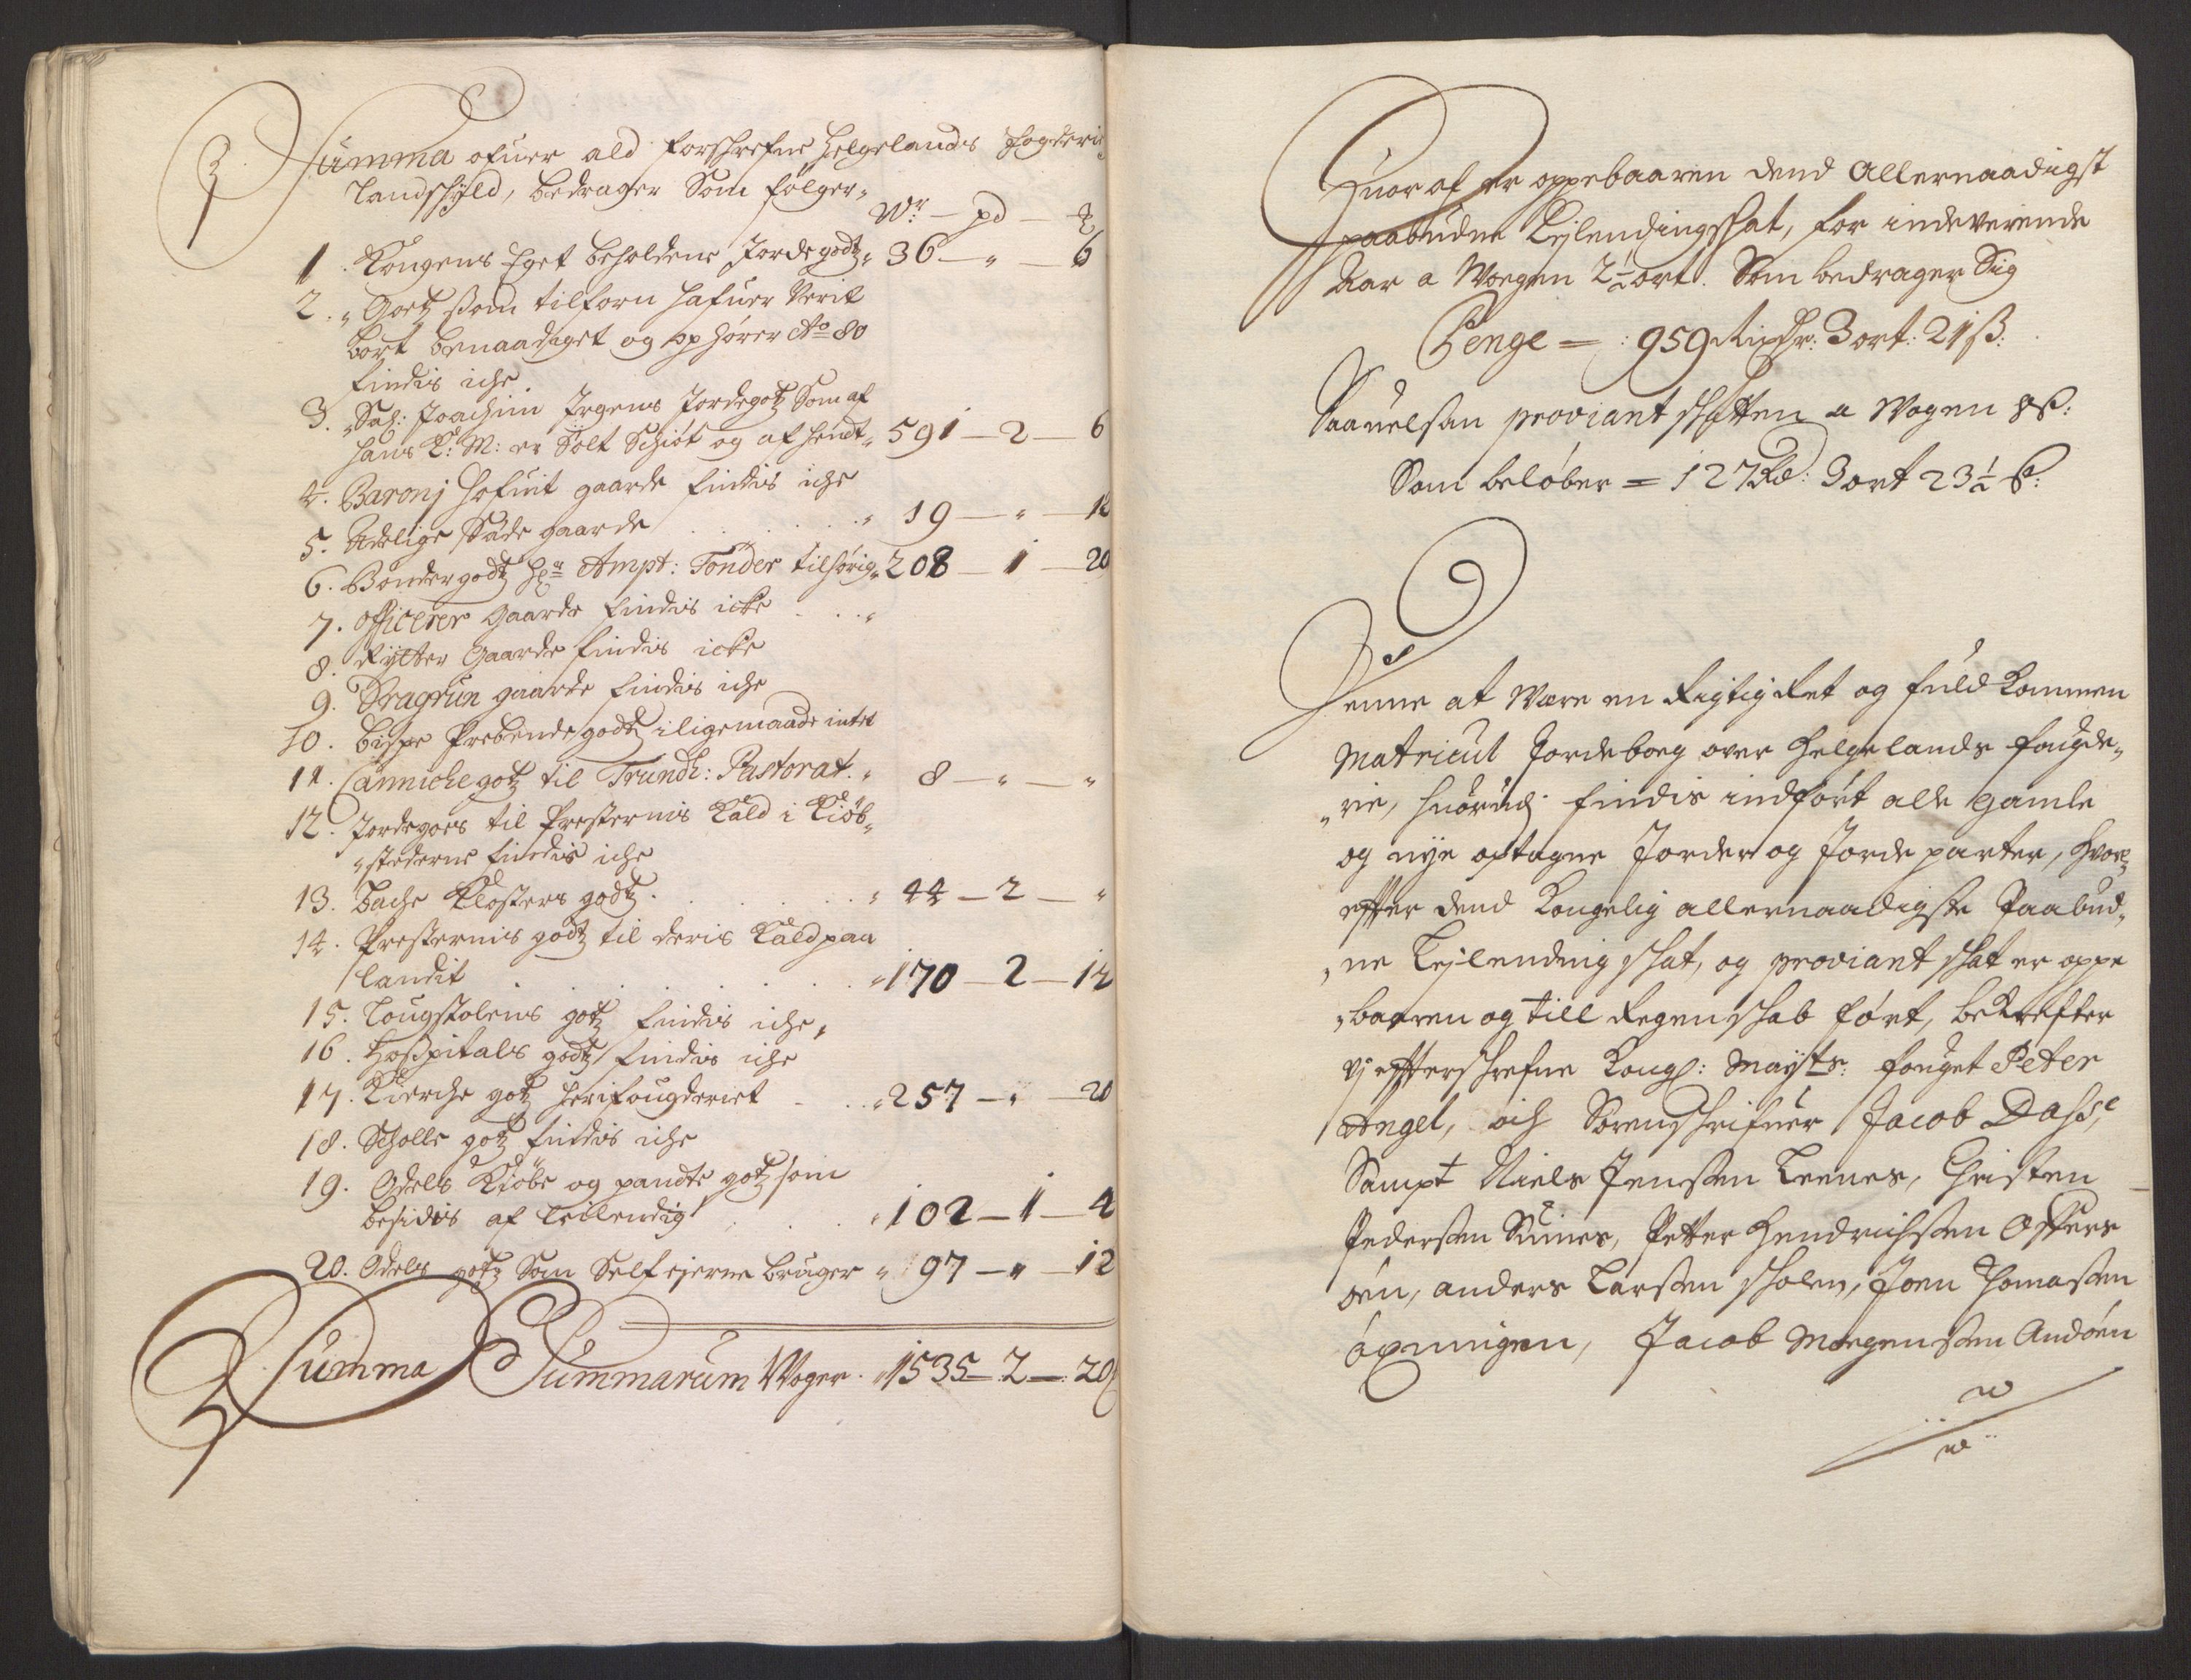 Summa ofuer ald forschrefne Helgelands fogderie
Landschyld, bedrager Som følger,
Wr — pd — ℔
1. Kongens Eget beholdene Jordegodtz „ 36 — „ — 6
2. „ Goetz som tilforn hafuer Verit
bort benaadiget og ophører Ao 80
findis iche
3. „ Sal: Joachim Irgens Jordegotz Som af
hans K: M: er Sølt Schiøt og afhendt „ 591 — 2 — 6
4. Baronj Hofuit gaarde findis iche
5. Adelige Sæde gaarde . . . . „ 19 — „ — 12
6. Bøndergodtz Hr Ampt: Tønder tilhørig „ 208 — 1 — 20
7. Officerer Gaarde findis icke . . . „
8. Rytter Gaarde findis icke
9. Dragoun gaarde findis iche
10. Bispe Prebende godtz iligemaade intet
11. Cannichegotz til Trundh: Pastorat. „ 8 — „ — „
12. Jordegoes til Presternis Kald i Kiøb„
„stederne findis iche
13. Bache Klosters godtz . . . . . „ 44 — 2 — „
14. Presternis godtz til deris Kald paa
landit . . . . . . . „ 170 — 2 — 14
15. Lougstolens gotz findis iche,
16. Hospitals godtz findis iche
17. Kierche gotz heri fougderiet . . . „ 257 — „ — 20
18. Scholle gotz findis iche
19. Odels Kiøbe og pandte gotz som
besidis af leilendig . . . „ 102 — 1 — 4
20. Odels gotz Som Self ejerne bruger „ 97 — „ — 12
Summa Summarum Woger . „ 1535 — 2 — 20
Huor af er oppebaaren dend Allernaadigst
paabudne Lejlendingschat, for indeverende
Aar a Woegen 2½ ort. Som bedrager Sig
Penge = : 959 Rixdr: 3 ort: 21 ß:
Saauelsom proviant schatten a Wogen 8 ß:
Som beløber = 127 Rd: 3 ort 23½ ß:
Denne at Være en Rigtig Ret og fuldkommen
Matricul Jordeboeg over Helgelands fougde„
„rie, huorudj findis indført alle gamle
og nye optagne Jorder og Jorde parter, Hvor„
effter dend Kongelig allernaadigste Paabud„
„ne Lejlending schat, og proviant schat er oppe
„baaren og till Regenschab ført, bekrefter
vj effterschrefne Kongl: Mayts: fouget Peter
Angel, och Sorenschrifuer Jacob Dass,
Sampt Niels Jensen Leenes, Christen
Pedersen Suines, Petter Hendrichsen Offers
øen, anders Larsen scholen, Joen Thomasen
Jacob Mogensen Andøen